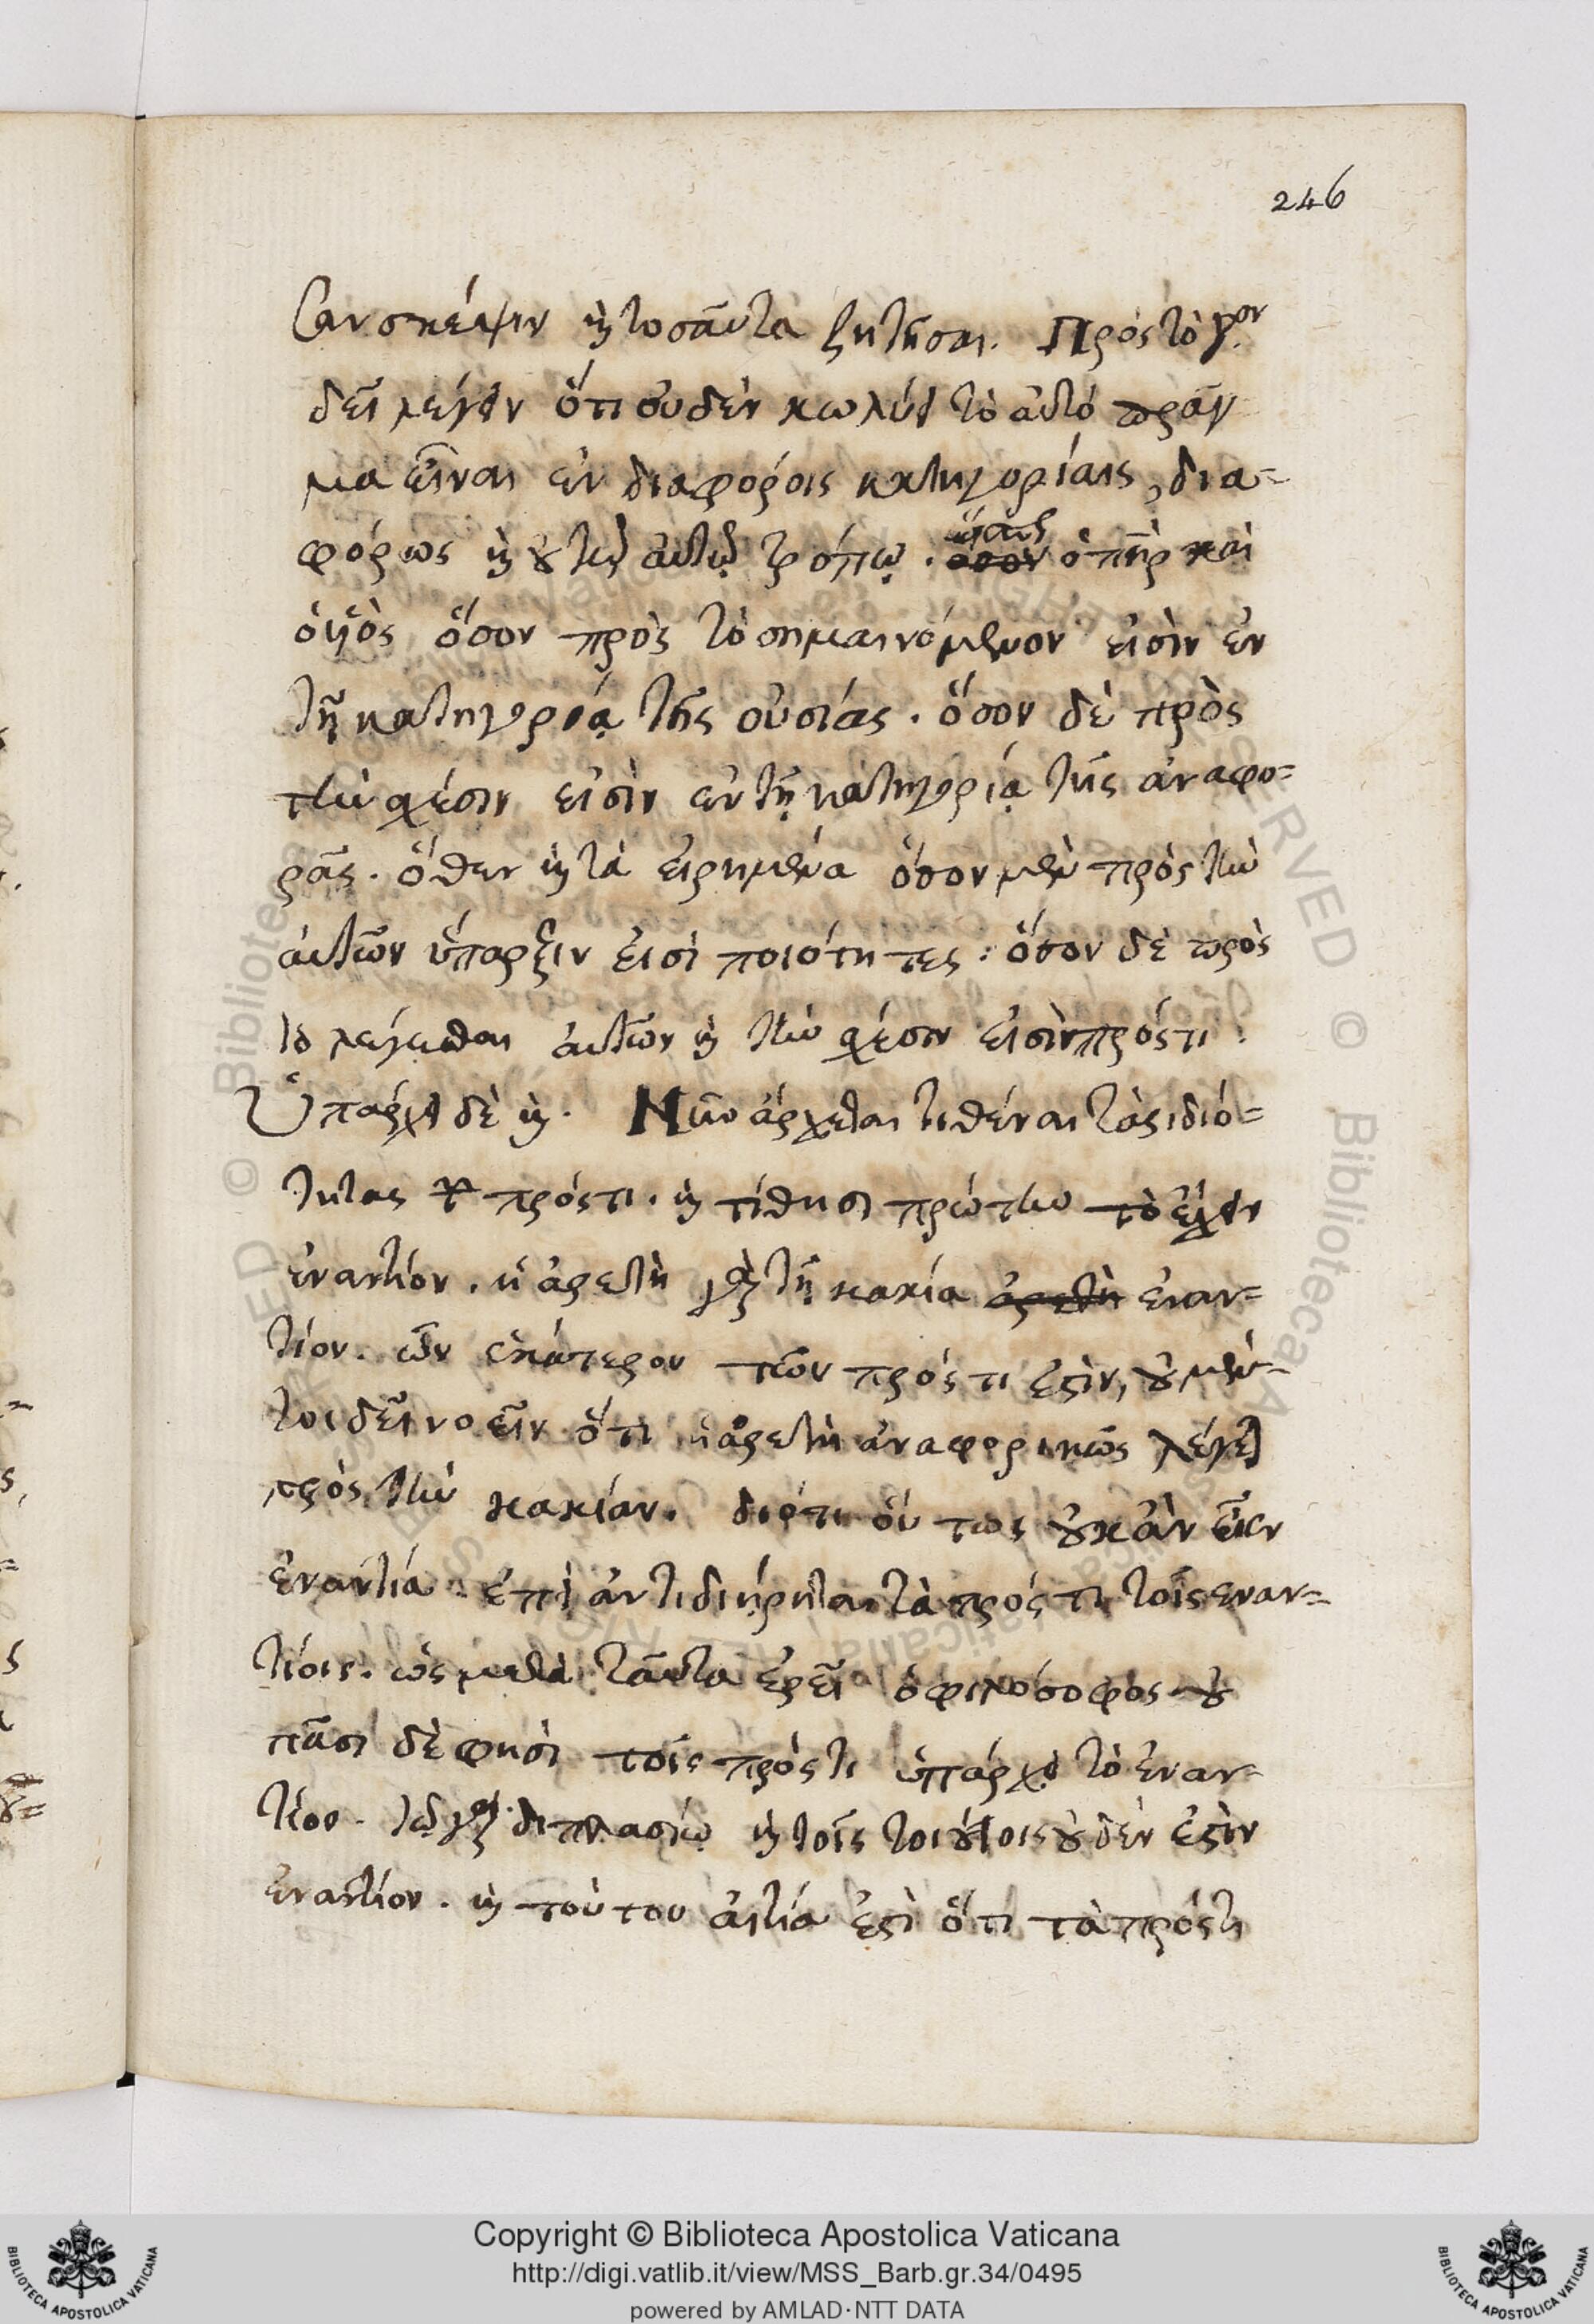 246
σαν σκέψιν καὶ τοσαῦτα ζητῆσαι. Πρὸς τὸ γον
δεῖ λέγειν ὅτι οὐδὲν κωλύει τὸ αὐτὸ πρᾶγ
μα εἶναι ἐν διαφόροις κατηγορίαις, δια=
φόρως καὶ οὐ τῷ αὐτῷ τρόπῳ. ὥσπερ ὅσον ὁ πῆρ καὶ
ὁ υἱὸς ὅσον πρὸς τὸ σημαινόμενον εἰσὶν ἐν
τῇ κατηγορίᾳ τῆς οὐσίας. ὅσον δὲ πρὸς
τὴν σχέσιν εἰσὶν ἐν τῇ κατηγορίᾳ τῆς ἀναφο=
ρᾶς. ὅθεν καὶ τὰ εἰρημένα ὅσον μὲν πρὸς τὴν
αὐτῶν ὕπαρξιν εἰσὶ ποιότητες: ὅσον δὲ πρὸς
τὸ λέγεσθαι αὐτῶν καὶ τὴν σχέσιν εἰσὶν πρός τι.
Ὑπάρχει δὲ καὶ. Νῦν ἄρχεται τιθέναι τὰς ἰδιό=
τητας τῶν πρός τι. καὶ τίθησι πρώτην τὸ ἔχειν
ἐναντίον. ἡ ἀρετὴ γὰρ τῇ κακία ἀρετὴ ἐναν=
τίον. ὧν ἑκάτερον τῶν πρός τι ἐστὶν, οὐ μέν=
τοι δεῖ νοεῖν ὅτι ἡ ἀρετὴ ἀναφορικῶς λέγεται
πρὸς τὴν κακίαν. διότι οὕτως οὐκ ἂν εἶεν
ἐναντία. ἐπεὶ ἀντιδιῄρηται τὰ πρός τι τοῖς ἐναν=
τίοις. ὡς μετὰ ταῦτα ἐρεῖ ὁ φιλόσοφος οὐ
πᾶσι δὲ φησὶ τοῖς πρός τι ὑπάρχει τὸ ἐναν=
τίον. τῷ γὰρ διπλασίῳ καὶ τοῖς τοιούτοις οὐδέν ἐστιν
ἐναντίον. καὶ τούτου αἰτία ἐστὶ ὅτι τὰ πρός τι
Copyright © Biblioteca Apostolica Vaticana
http://digi.vatlib.it/view/MSS_Barb.gr.34/0495
powered by AMLAD·NTT DATA
BIBLIOTECA APOSTOLICA VATICANA
BIBLIOTECA APOSTOLICA VATICANA